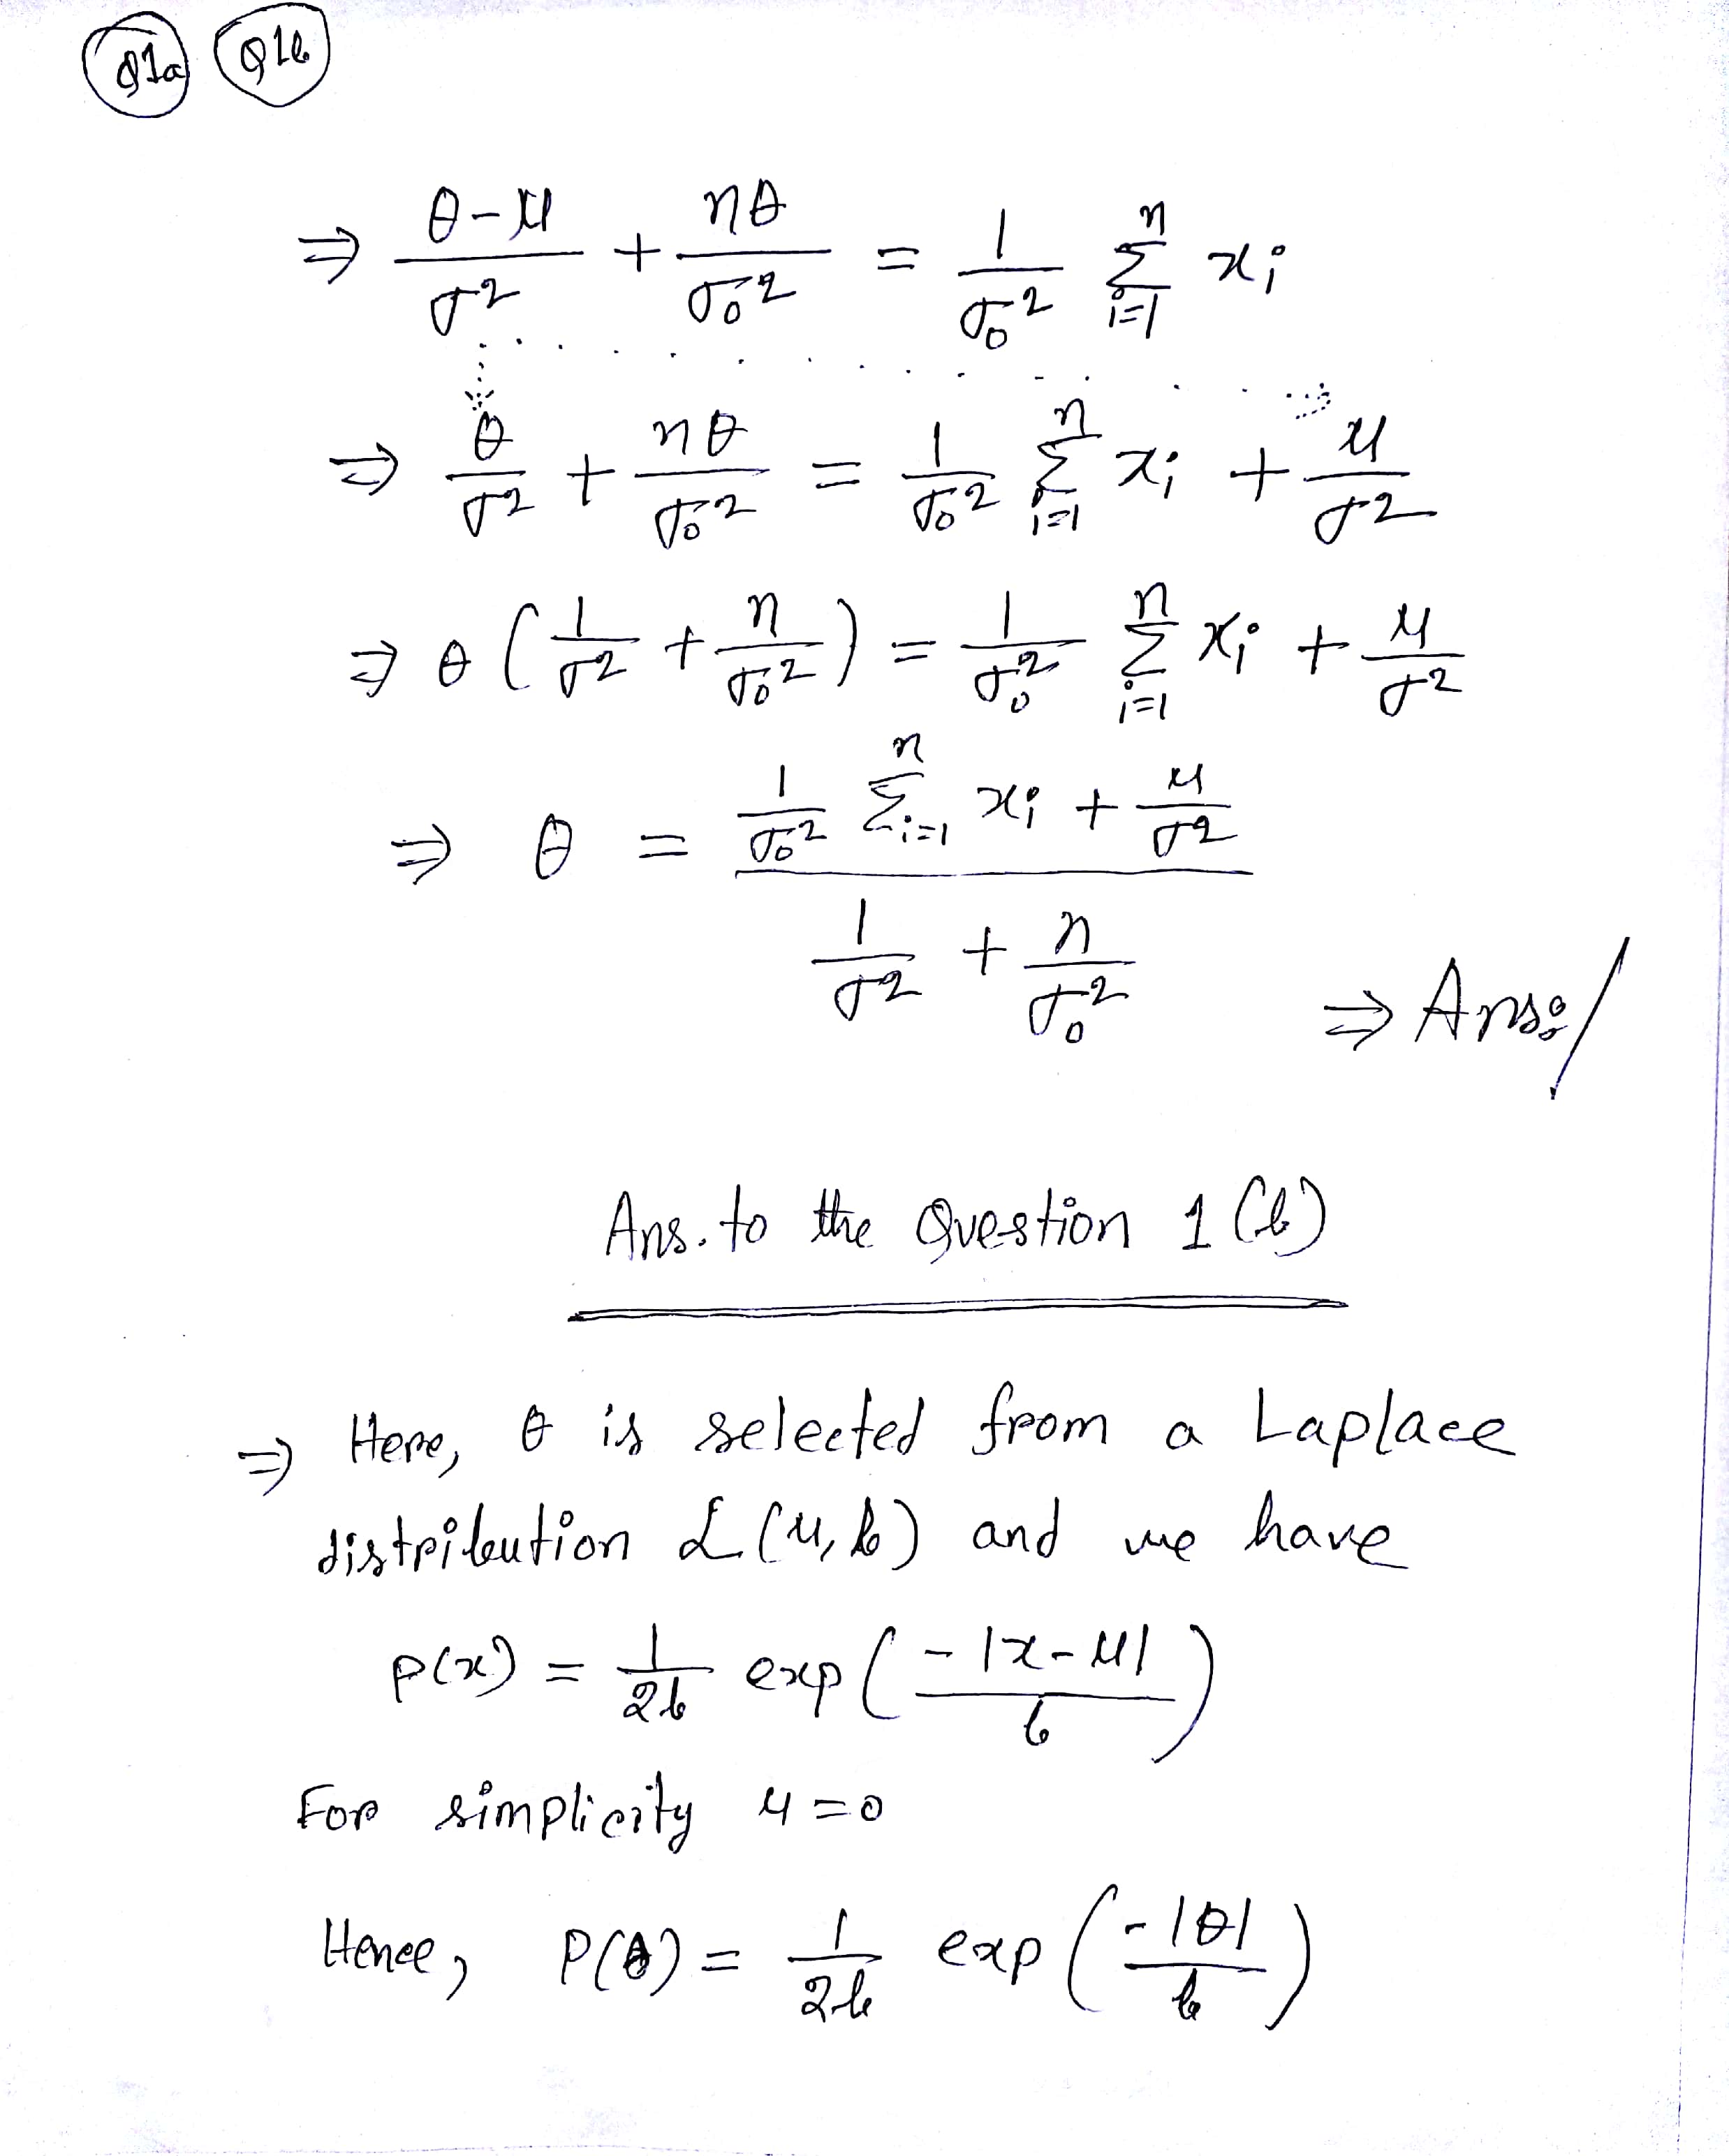 Q1a Q1b
⇒ (θ-μ)/σ² + nθ/σ₀² = 1/σ₀² Σ_{i=1}^{n} xᵢ
⇒ θ/σ² + nθ/σ₀² = 1/σ₀² Σ_{i=1}^{n} xᵢ + μ/σ²
⇒ θ (1/σ² + n/σ₀²) = 1/σ₀² Σ_{i=1}^{n} xᵢ + μ/σ²
⇒ θ = (1/σ₀² Σ_{i=1}^{n} xᵢ + μ/σ²) / (1/σ² + n/σ₀²)
⇒ Ans:/
Ans. to the Question 1 (b)
⇒ Here, θ is selected from a Laplace
distribution L(μ, b) and we have
P(x) = 1/2b exp(-|x-μ|/b)
For simplicity μ=0
Hence, P(θ) = 1/2b exp(-|θ|/b)